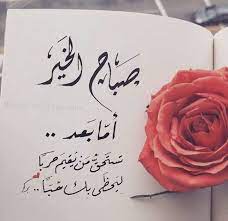 صباح الخير
أما بعد ..
تستحق من يقيم حربا
ليحظى بك حبا ..